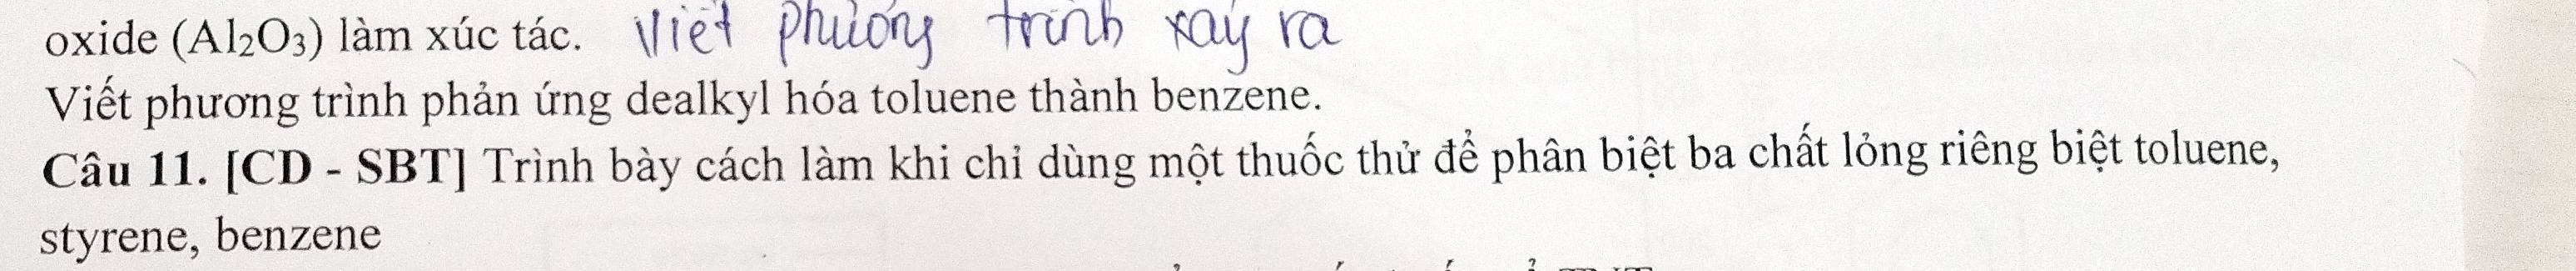 oxide (Al₂O₃) làm xúc tác. Viết phương trình xảy ra
Viết phương trình phản ứng dealkyl hóa toluene thành benzene.
Câu 11. [CD - SBT] Trình bày cách làm khi chỉ dùng một thuốc thử để phân biệt ba chất lỏng riêng biệt toluene,
styrene, benzene